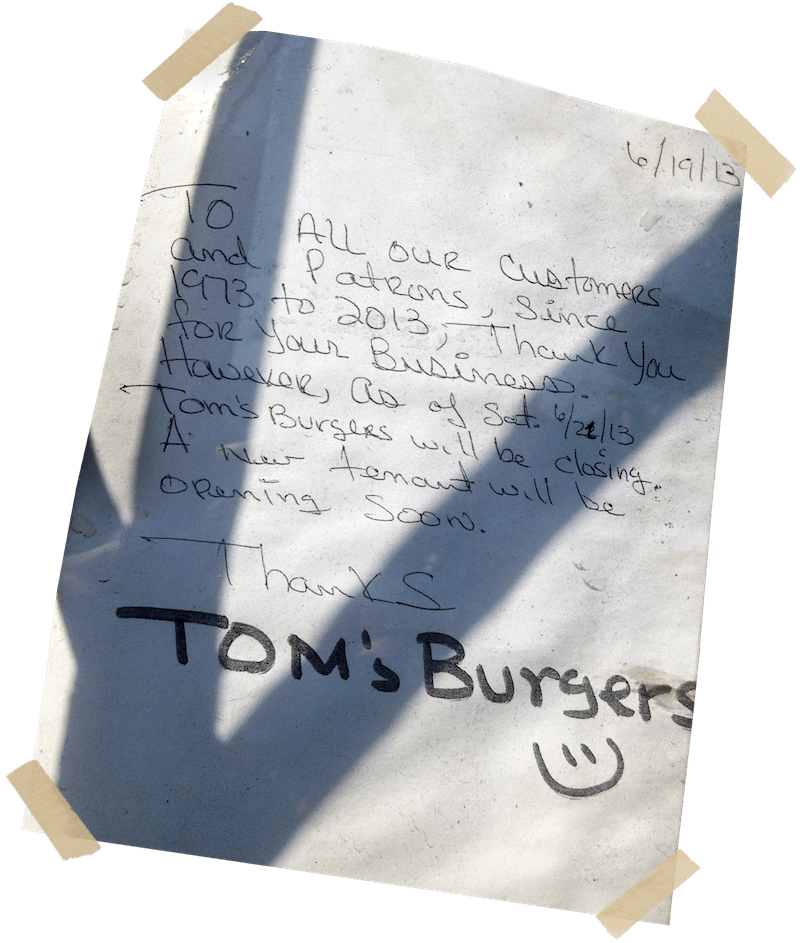 6/19/13
To ALL our customers
and Patrons, Since
1973 to 2013, Thank You
for Your Business.
However, as of Sat. 6/22/13
Tom's Burgers will be closing.
A New tenant will be
opening Soon.
Thanks
TOM's Burgers